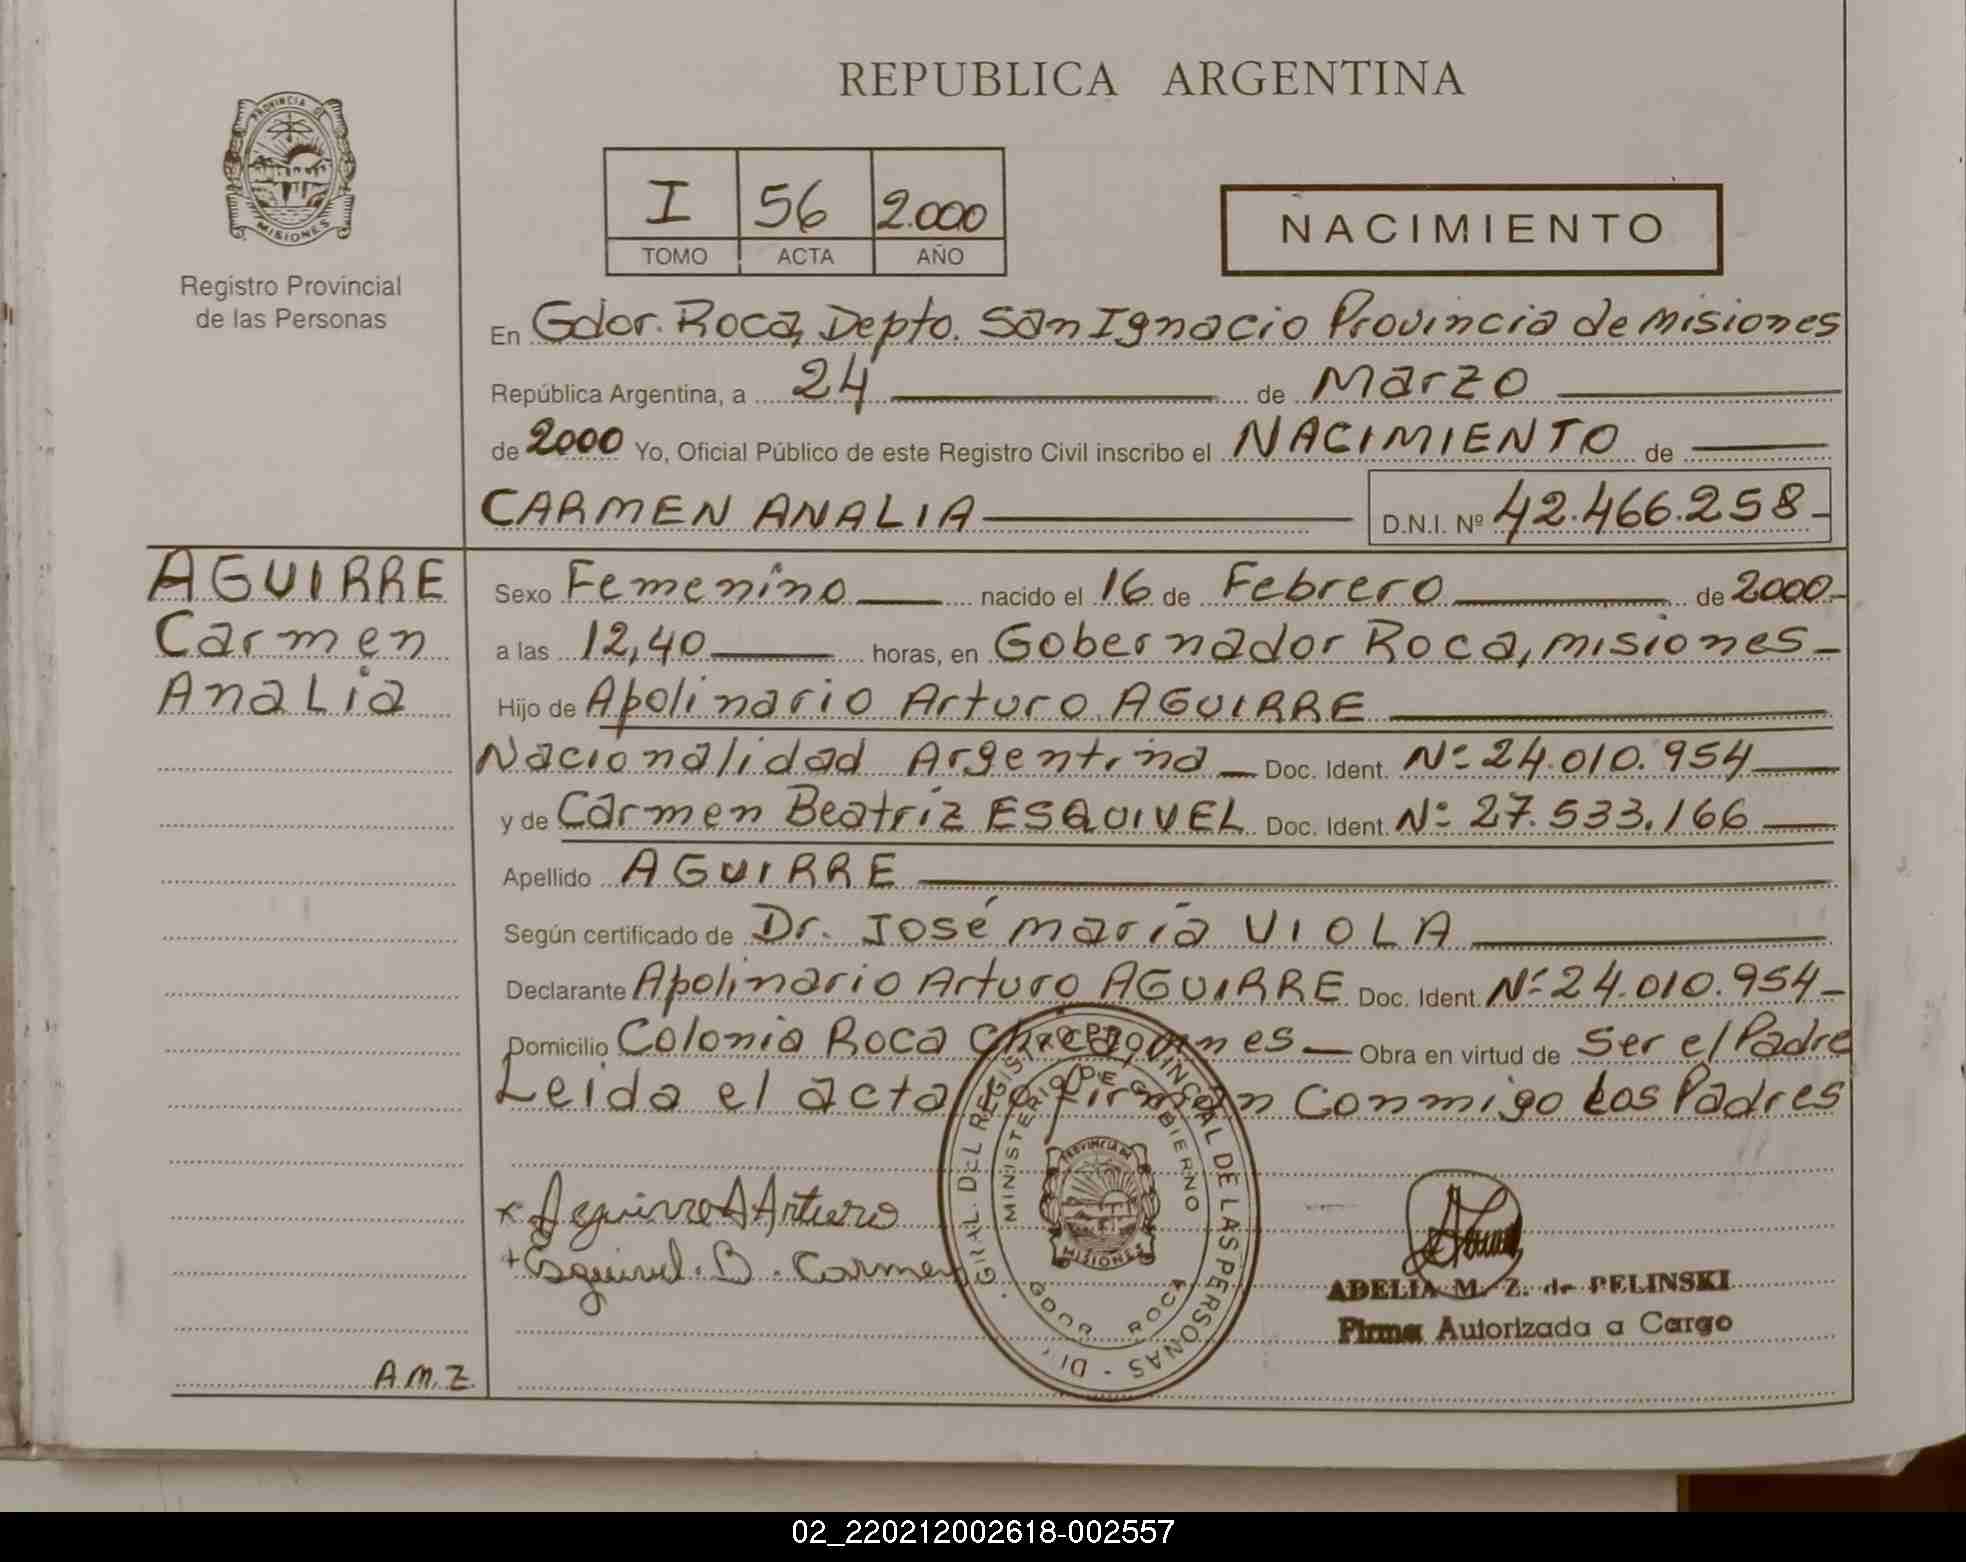 REPUBLICA ARGENTINA
PROVINCIA DE
MISIONES
Registro Provincial
de las Personas
I 56 2.000
TOMO ACTA AÑO
NACIMIENTO
En Gdor. Roca, Depto. San Ignacio Provincia de Misiones
República Argentina, a 24 de Marzo
de 2000 Yo, Oficial Público de este Registro Civil inscribo el NACIMIENTO de
CARMEN ANALIA D.N.I. Nº 42.466.258
AGUIRRE
Carmen
Analia
Sexo Femenino nacido el 16 de Febrero de 2000
a las 12,40 horas, en Gobernador Roca, Misiones
Hijo de Apolinario Arturo AGUIRRE
Nacionalidad Argentina Doc. Ident. Nº 24.010.954
y de Carmen Beatriz ESQUIVEL Doc. Ident. Nº 27.533.166
Apellido AGUIRRE
Según certificado de Dr. José María VIOLA
Declarante Apolinario Arturo AGUIRRE Doc. Ident. Nº 24.010.954
Domicilio Colonia Roca Chica Obra en virtud de Ser el Padre
Leida el acta la firman Conmigo Los Padres
x Aguirre A Arturo
+ Esquivel. B. Carmen
REGISTRO PROVINCIAL DE LAS PERSONAS
MINISTERIO DE GOBIERNO
PROVINCIA DE
MISIONES
GDOR ROCA
ADELIA M. Z. de PELINSKI
Firma Autorizada a Cargo
A.M.Z.
02_220212002618-002557